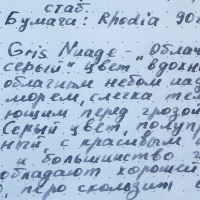 стаб.
Бумага: Rhodia 90г
Gris Nuage - "Облач
серый" цвет вдохн
облачным небом над
морем, слегка тем
ющим перед грозой
Серый цвет, полупр
ный, с красивым
и большинство
обладают хорошей
перо скользит